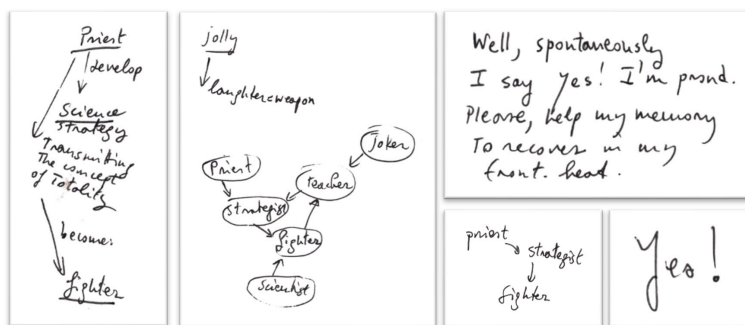 Priest
develop
Science
strategy
Transmitting
The concept
of Totality
become:
fighter
jolly
laughter=weapon
Joker
Priest
teacher
strategist
fighter
Scientist
Well, spontaneously
I say yes! I'm proud.
Please, help my memory
To recover in my
front. head.
priest
strategist
fighter
Yes!